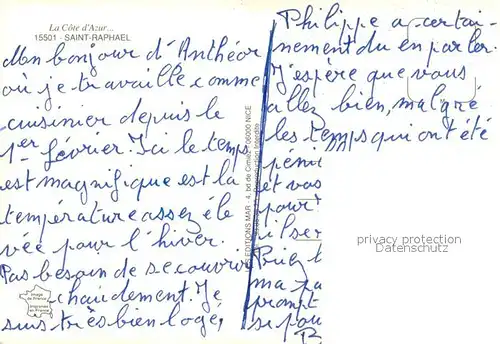 La Côte d'Azur...
15501 - SAINT-RAPHAEL
Mon bonjour d'Anthéor
où je travaille comme
cuisinier depuis le
1er février. Ici le temps
est magnifique est la
température assez éle
vée pour l'hiver.
Pas besoin de se couvrir
chaudement. Je
suis très bien logé,
EDITIONS MAR - 4, bd de Cimiez - 06000 NICE
Reproduction Interdite
Image
de France
Imprimée
en France
Philippe a certai-
nement du en parler.
J'espère que vous
allez bien, malgré
les temps qui ont été
péni
et vos
pour
il se
Priez
ma pa
prompt
si pou
privacy protection
Datenschutz